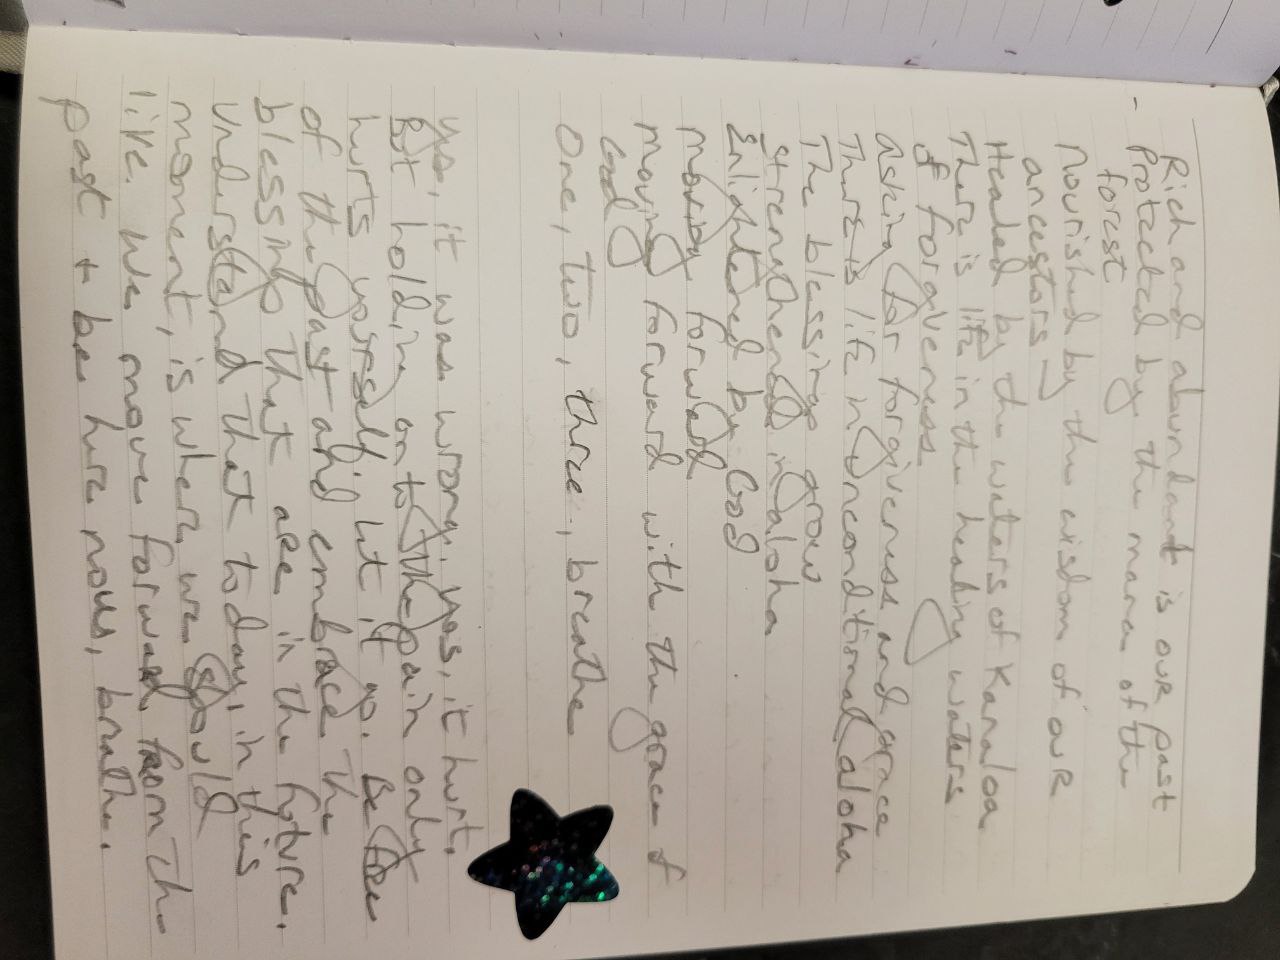 Rich and abundant is our past
- Protected by the mana of the
forest
Nourished by the wisdom of our
ancestors
Healed by the waters of Kanaloa
There is life in the healing waters
of forgiveness
asking for forgiveness and grace
There is life in unconditional aloha
The blessings grow
strengthened in aloha
Enlightened by God
moving forward
moving forward with the grace of
God
One, two, three, breathe
yes, it was wrong, yes, it hurt.
But holding on to the pain only
hurts yourself. let it go. Be free
of the past and embrace the
blessings that are in the future.
understand that today, in this
moment, is where we should
live. We move forward from the
past + be here now, breathe.